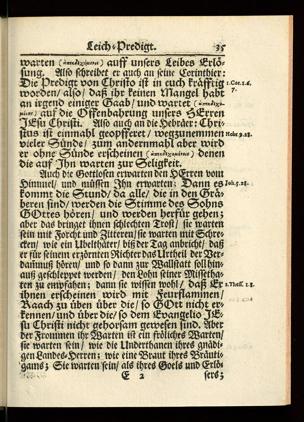 Leich-Predigt. 35
warten (ἀπεκδεχόμενοι) auff unsers Leibes Erlö-
sung. Also schreibet er auch an seine Corinthier:
Die Predigt von Christo ist in euch kräfftig 1.Cor.1.6.
worden/ also/ daß ihr keinen Mangel habt 7.
an irgend einiger Gaab/ und wartet (ἀπεκδεχό-
μενοι) auf die Offenbahrung unsers HErren
JEsu Christi. Also auch an die Hebräer: Chri-
stus ist einmahl geopffert/ wegzunemmen Hebr.9.28.
vieler Sünde/ zum andernmahl aber wird
er ohne Sünde erscheinen (ἀπεκδεχομένοις) denen
die auf Ihn warten zur Seligkeit.
Auch die Gottlosen erwarten den HErren vom
Himmel/ und müssen Ihn erwarten: Dann es
kommt die Stund/ da alle/ die in den Grä- Joh.5.28.
beren sind/ werden die Stimme des Sohns
GOttes hören/ und werden herfür gehen;
aber das bringet ihnen schlechten Trost/ sie warten
sein mit Forcht und Zitteren/ sie warten mit Schre-
cken/ wie ein Ubelthäter/ biß der Tag anbricht/ daß
er für seinem erzörnten Richter das Urtheil der Ver-
damnuß hören/ und so dann zur Wallstatt soll hin-
auß geschleppet werden/ den Lohn seiner Missetha-
ten zu empfahen; dann sie wissen wohl/ daß Er 2.Thess.1.8.
ihnen erscheinen wird mit Feurflammen/
Raach zu üben über die/ so GOtt nicht er-
kennen/ und über die/ so dem Evangelio JE-
su Christi nicht gehorsam gewesen sind. Aber
der Frommen ihr Warten ist ein fröliches Warten/
sie warten sein/ wie die Underthanen ihres gnädi-
gen Landes-Herren; wie eine Braut ihres Bräuti-
gams; Sie warten sein/ als ihres Goels und Erlö-
E 2 sers;